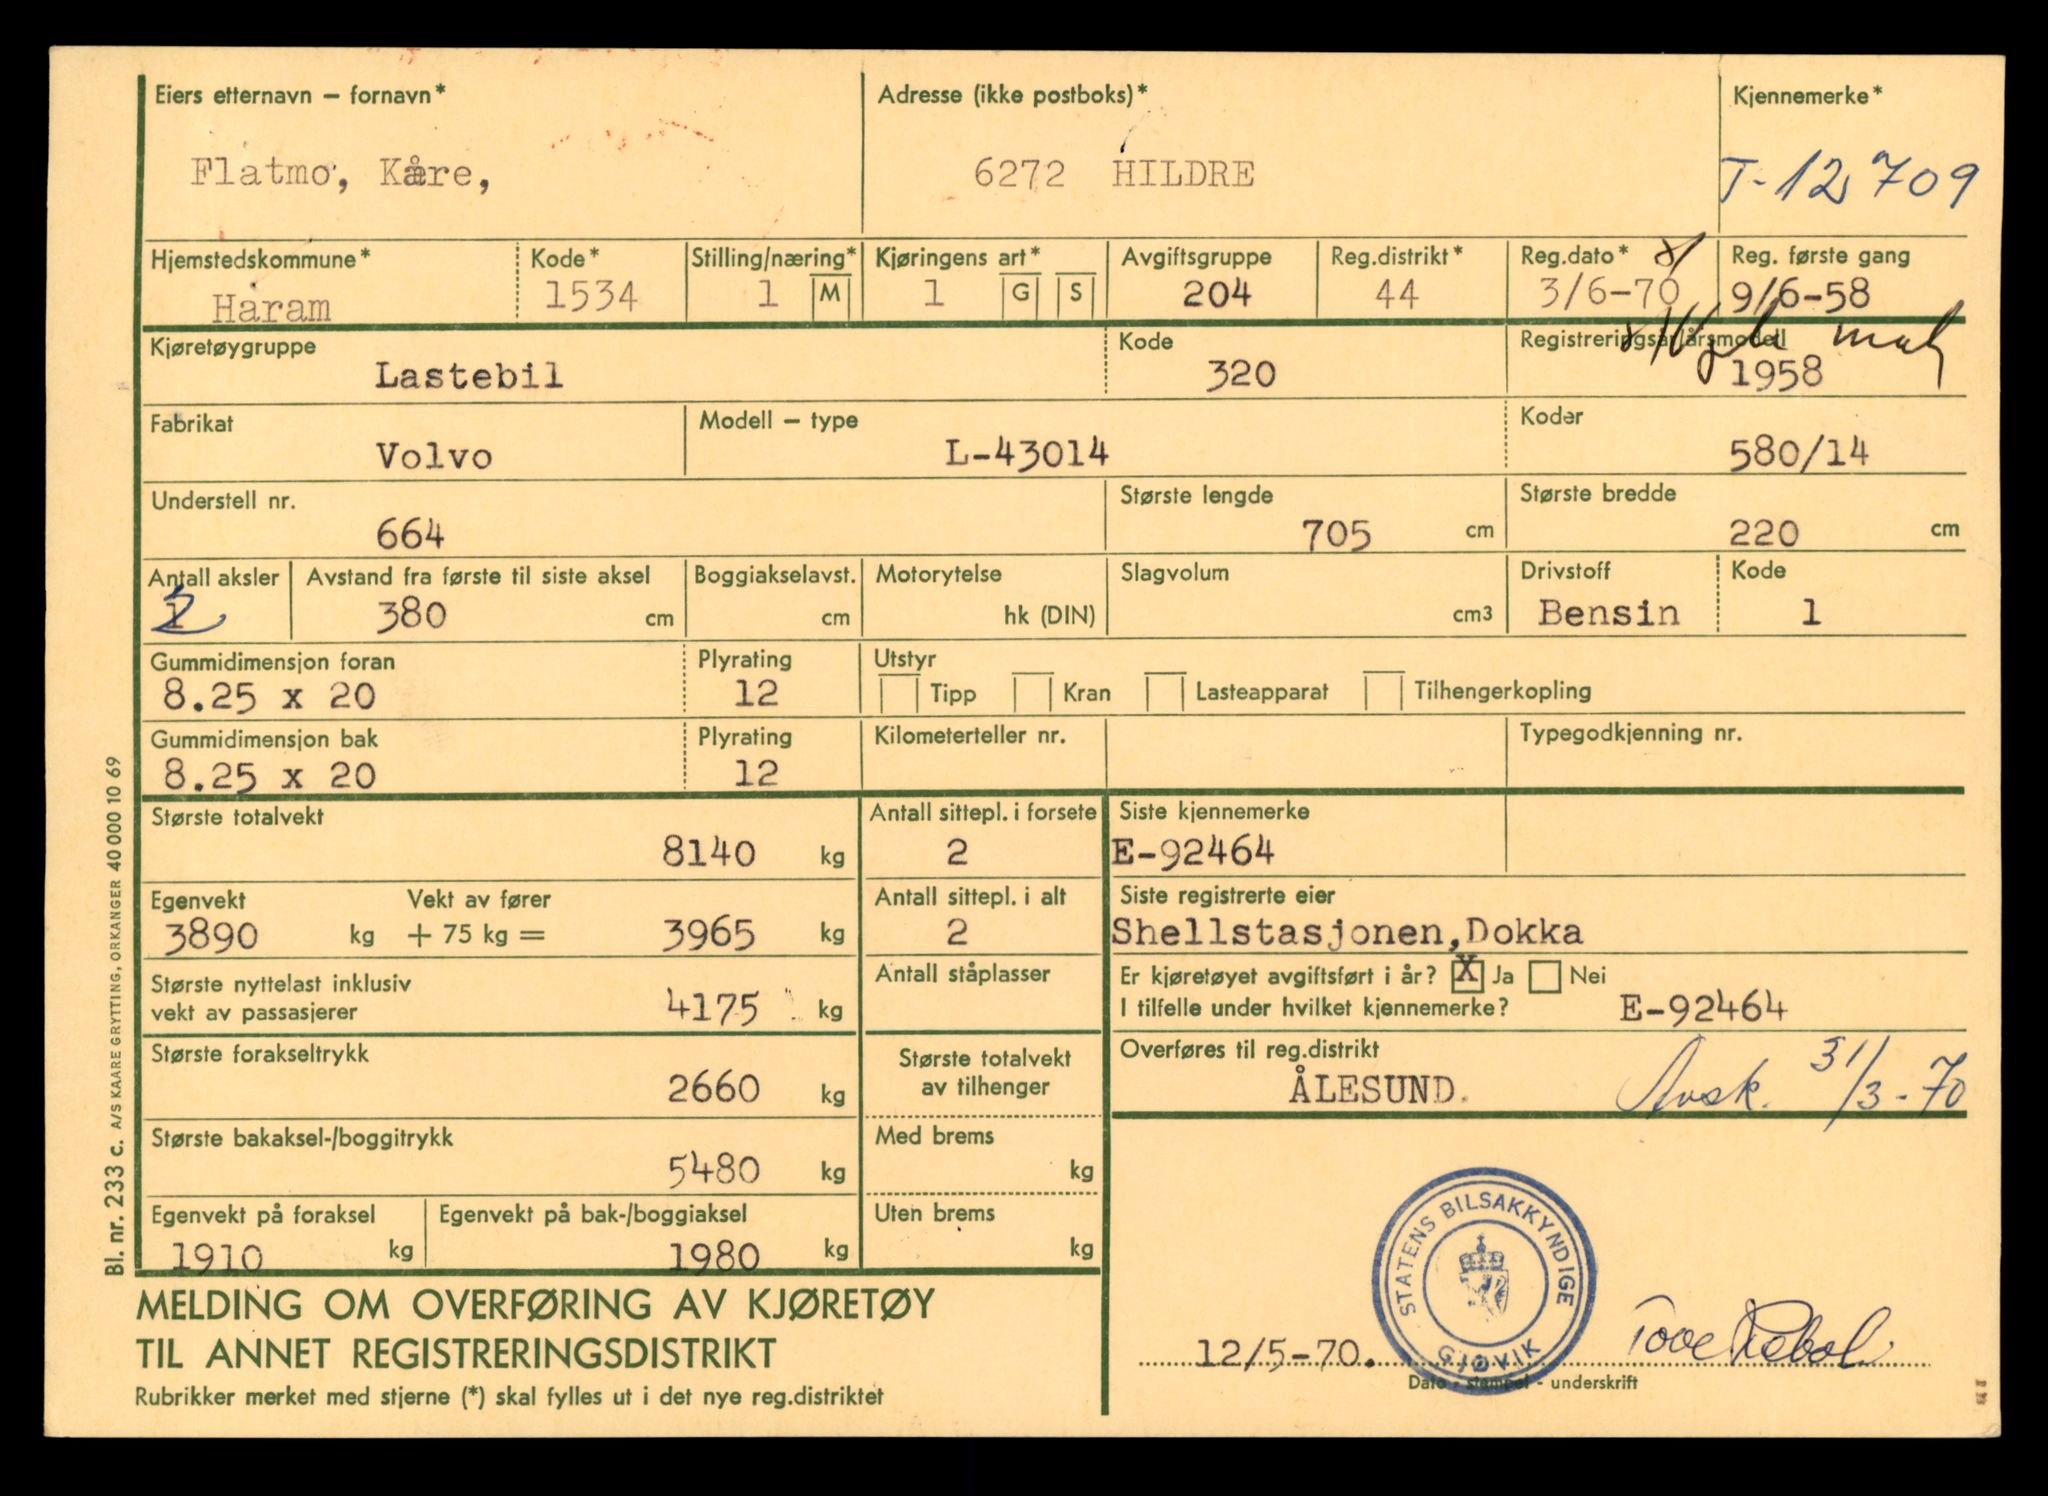 Eiers etternavn – fornavn*
Adresse (ikke postboks)*
Kjennemerke*
Flatmo, Kåre,
6272 HILDRE
T-12709
Hjemstedskommune*
Kode*
Stilling/næring*
Kjøringens art*
Avgiftsgruppe
Reg.distrikt*
Reg.dato*
Reg. første gang
Haram
1534
1 M
1 G S
204
44
3/6-70
9/6-58
Kjøretøygruppe
Kode
Registreringsår/årsmodell
Lastebil
320
1958
Fabrikat
Modell – type
Koder
Volvo
L-43014
580/14
Understell nr.
Største lengde
Største bredde
664
705 cm
220 cm
Antall aksler
Avstand fra første til siste aksel
Boggiakselavst.
Motorytelse
Slagvolum
Drivstoff
Kode
2
380 cm
cm
hk (DIN)
cm3
Bensin
1
Gummidimensjon foran
Plyrating
Utstyr
8.25 x 20
12
Tipp
Kran
Lasteapparat
Tilhengerkopling
Gummidimensjon bak
Plyrating
Kilometerteller nr.
Typegodkjenning nr.
8.25 x 20
12
Største totalvekt
8140 kg
Antall sittepl. i forsete
2
Siste kjennemerke
E-92464
Egenvekt
3890 kg
Vekt av fører
+ 75 kg =
3965 kg
Antall sittepl. i alt
2
Siste registrerte eier
Shellstasjonen,Dokka
Største nyttelast inklusiv
vekt av passasjerer
4175 kg
Antall ståplasser
Er kjøretøyet avgiftsført i år? X Ja Nei
I tilfelle under hvilket kjennemerke? E-92464
Største forakseltrykk
2660 kg
Største totalvekt
av tilhenger
Overføres til reg.distrikt
ÅLESUND.
Avsk. 31/3-70
Største bakaksel-/boggitrykk
5480 kg
Med brems
kg
Egenvekt på foraksel
1910 kg
Egenvekt på bak-/boggiaksel
1980 kg
Uten brems
kg
MELDING OM OVERFØRING AV KJØRETØY
TIL ANNET REGISTRERINGSDISTRIKT
Rubrikker merket med stjerne (*) skal fylles ut i det nye reg.distriktet
12/5-70.
STATENS BILSAKKYNDIGE
GJØVIK
Dato - stempel - underskrift
Bl. nr. 233 c. A/S KAARE GRYTTING, ORKANGER 40 000 10 69